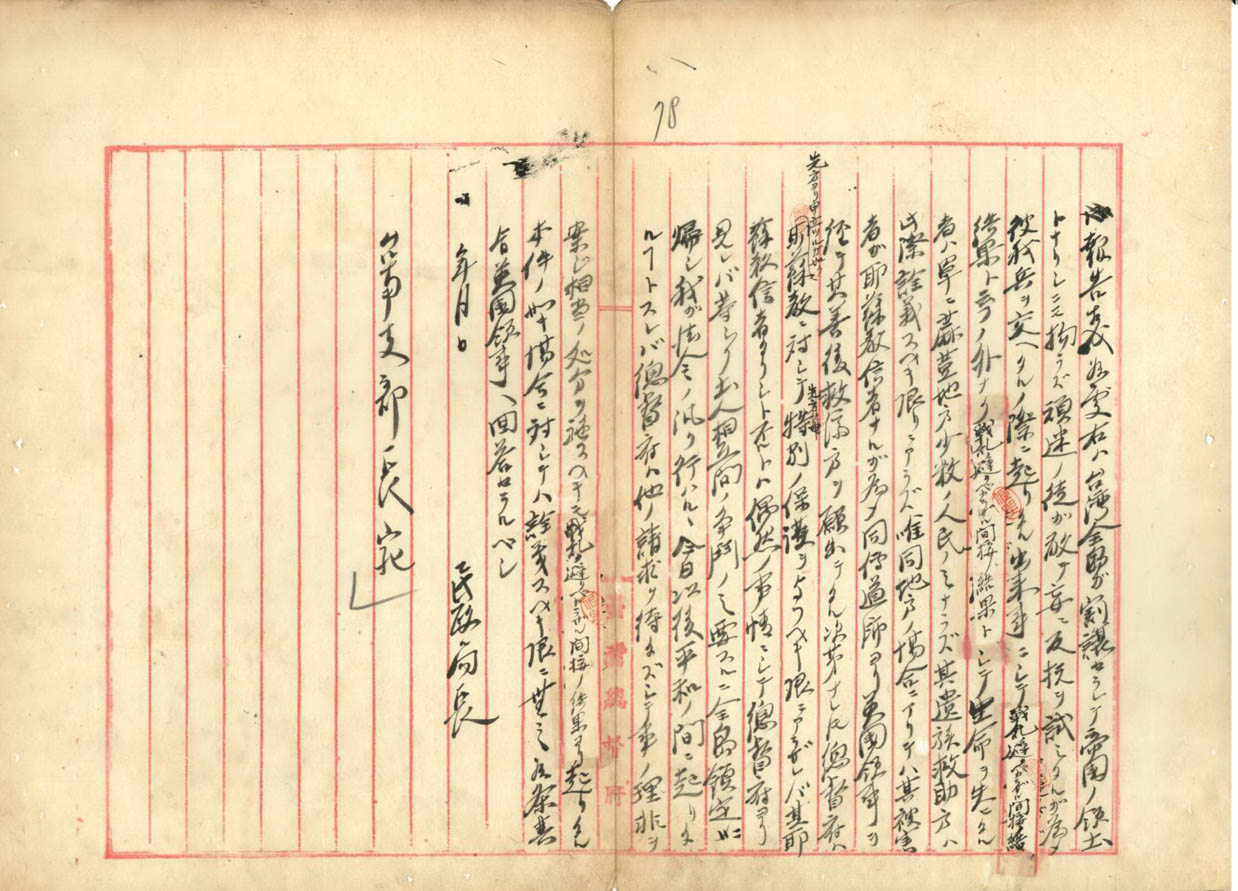 78
報告之次第有之處右ハ台湾全島ガ割譲セラレテ帝国ノ領土
トナリシニモ拘ラズ頑迷ノ徒ガ敢テ妄ニ反抗ヲ試ミタルガ為メ
彼我兵ヲ交ヘタルノ際ニ起リタル出来事ニシテ戦乱避クベカラザル間接ノ結
結果ト云フノ外ナク戦乱避クベカラザル間接ノ結果トシテ生命ヲ失ヒタル
者ハ単ニ麻荳地方少数ノ人民ノミナラズ其遺族救助方ハ
此際詮議スヘキ限リニアラズ唯同地方ノ場合ニアリテハ其被害
者ガ耶蘇教信者ナルガ為メ同傳道師ヨリ英国領事ヲ
経テ其善後救済方ヲ願出テタル次第ナレ共總督府ハ
先方ヨリ申立ツル
耶蘇教ニ対シテ特別ノ保護ヲ与フヘキ限ニアラザレバ其耶
蘇教信者タリシト否トハ偶然ノ事情ニシテ總督府ヨリ
見レバ等シク土人相互間ノ争闘ノミ要スルニ全島鎮定ニ
帰シ我ガ法令ノ汎ク行ハルヽ今日以後平和ノ間ニ起リタ
ルコトトスレバ總督府ハ他ノ請求ヲ待タズシテ事ノ理非ヲ
案シ相当ノ処分ヲ施スヘキモ戦乱避クベカラザル間接ノ結果ヨリ起リタル
本件ノ如キ場合ニ対シテハ詮義スヘキ限ニ無之候条其
旨英国領事ヘ回答セラルベシ
年月日
民政局長
台南支部長宛
臺灣總督府